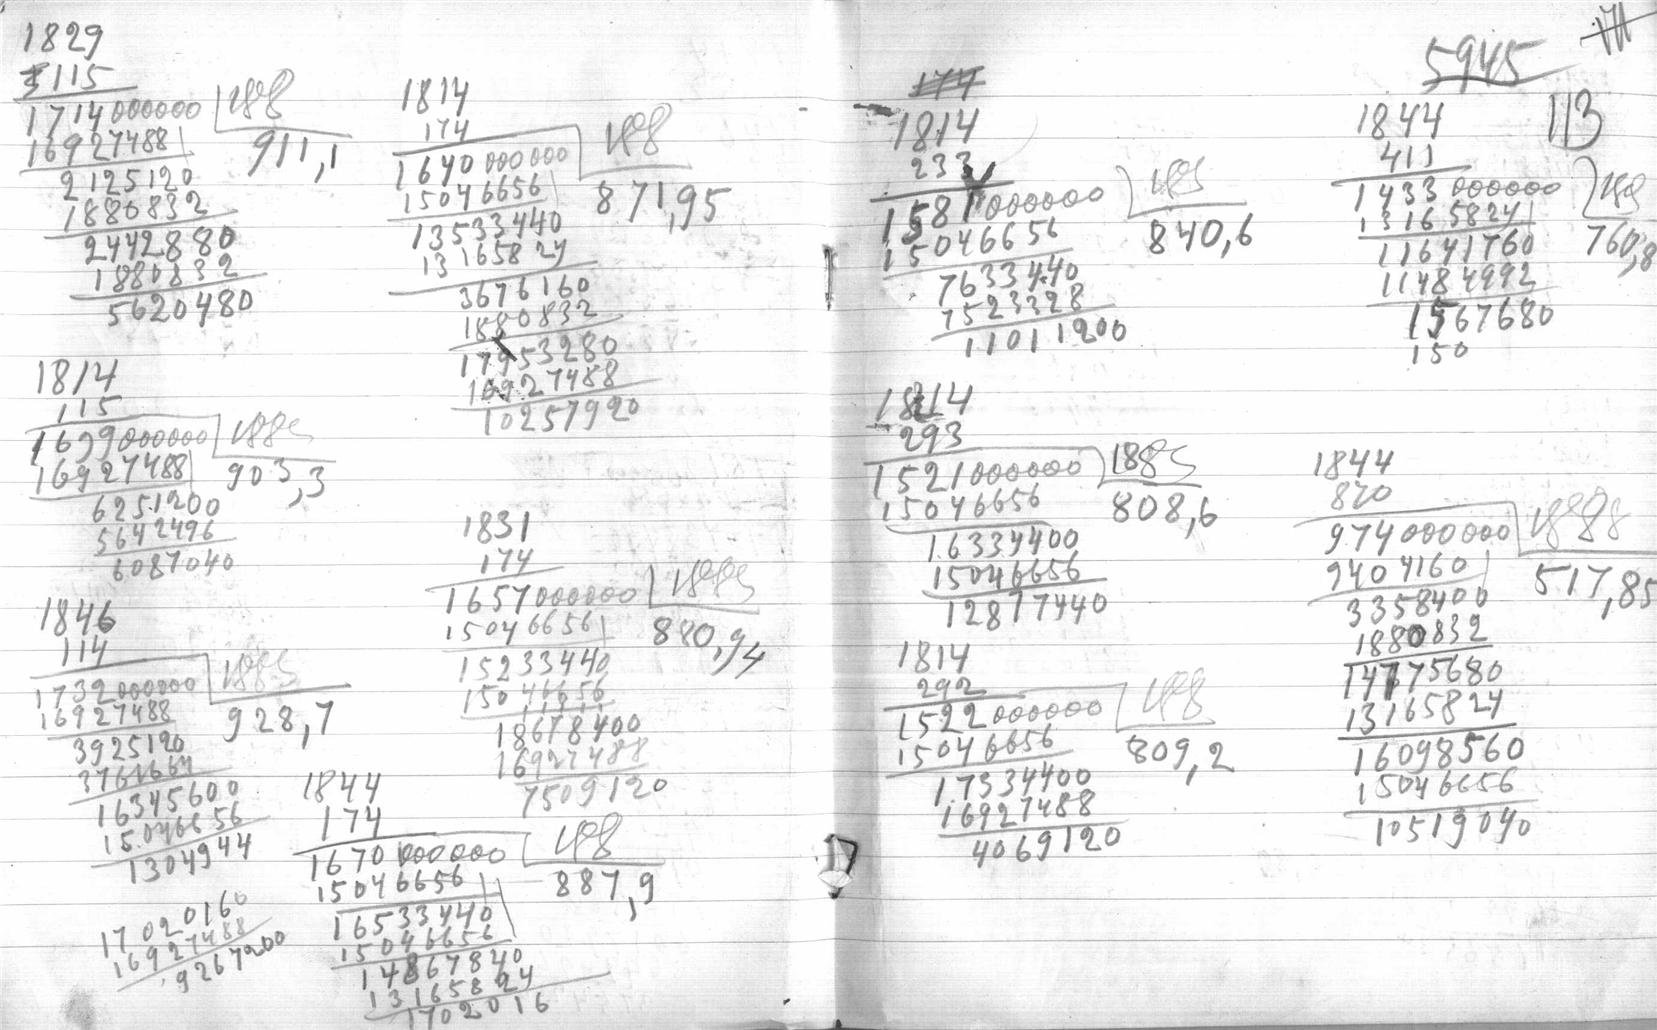 1829
115
1714000000
911,1
16927488
2125120
1880832
2442880
1880832
5620480
1814
115
1699000000
1885
903,3
16927488
6251200
5642496
6087040
1846
114
1732000000
1885
928,7
16927488
3925120
3761664
16345600
15046656
1304944
17020160
16927488
9267200
1814
174
1640000000
188
871,95
15046656
13533440
13165824
3676160
1880832
17953280
16927488
10257920
1831
174
1657000000
1885
880,94
15046656
15233440
15046656
18678400
16927488
7509120
1844
174
1670000000
188
887,9
15046656
16533440
15046656
14867840
13165824
1702016
174
1814
233
1581000000
185
840,6
15046656
7633440
7523328
11011200
1814
293
1521000000
1885
808,6
15046656
16334400
15046656
12877440
1814
292
1522000000
188
809,2
15046656
17334400
16927488
4069120
5945
113
1844
411
1433000000
188
760,8
13165824
11641760
11484992
1567680
150
1844
870
974000000
517,85
9404160
3358400
1880832
14775680
13165824
16098560
15046656
10519040